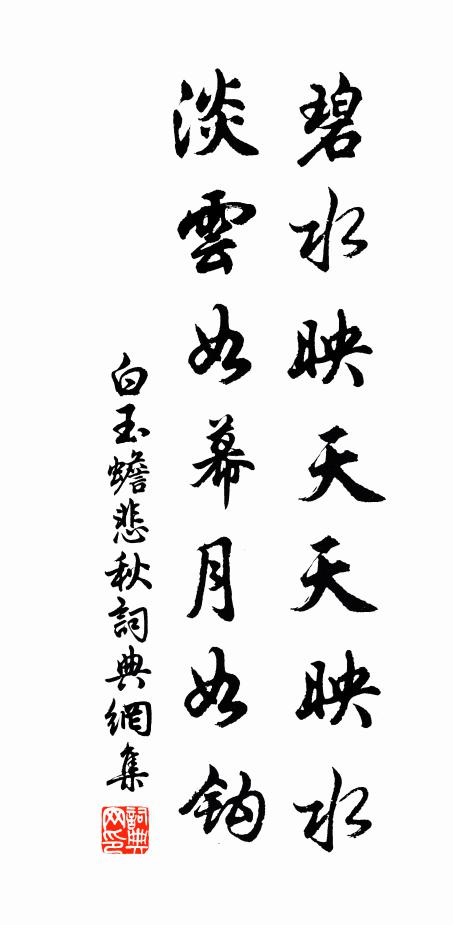 碧水映天天映水
淡雲如幕月如鈎
白玉蟾悲秋詞典網集
詞典網印